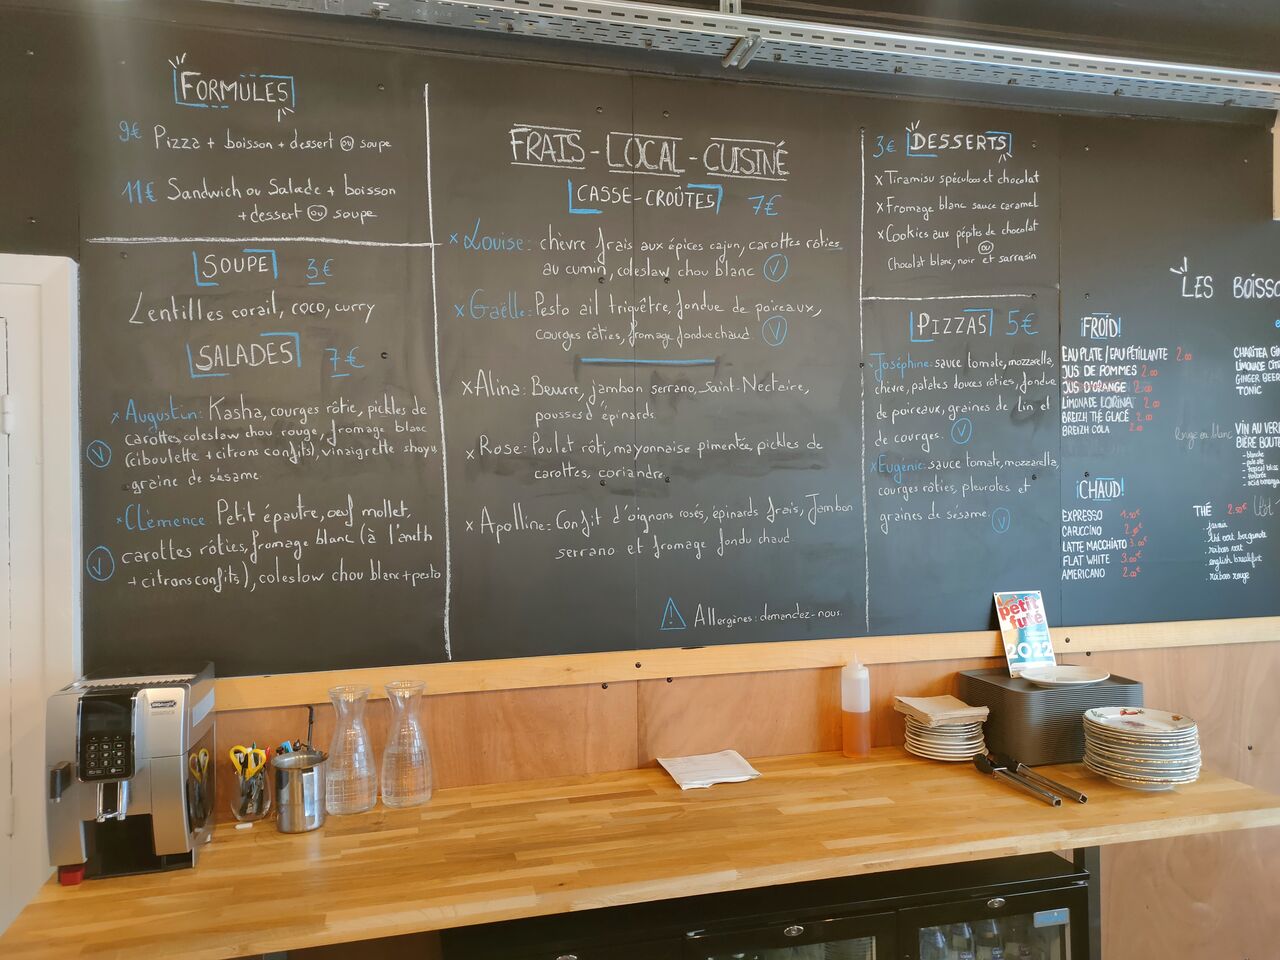 FORMULES
9€ Pizza + boisson + dessert ou soupe
11€ Sandwich ou Salade + boisson
+ dessert ou soupe
SOUPE 3€
Lentilles corail, coco, curry
SALADES 7€
x Augustin: Kasha, courges rôtie, pickles de
carottes, coleslaw chou rouge, fromage blanc
V (ciboulette + citrons confits), vinaigrette shoyu
graine de sésame
x Clémence: Petit épautre, oeuf mollet,
V carottes rôties, fromage blanc (à l'aneth
+ citrons confits), coleslow chou blanc + pesto
FRAIS - LOCAL - CUISINÉ
CASSE-CROÛTES 7€
x Louise: chèvre frais aux épices cajun, carottes rôties
au cumin, coleslaw chou blanc V
x Gaëlle: Pesto ail triquêtre, fondue de poireaux,
courges rôties, fromage fondue chaud. V
x Alina: Beurre, jambon serrano, Saint-Nectaire,
pousses d'épinards.
x Rose: Poulet rôti, mayonnaise pimentée, pickles de
carottes, coriandre
x Apolline: Confit d'oignons rosés, épinards frais, Jambon
serrano et fromage fondu chaud
Allergènes: demandez-nous.
3€ DESSERTS
x Tiramisu spéculoos et chocolat
x Fromage blanc sauce caramel
x Cookies aux pépites de chocolat
ou
Chocolat blanc, noir et sarrasin
PIZZAS 5€
x Joséphine: sauce tomate, mozzarella,
chèvre, patates douces rôties, fondue
de poireaux, graines de lin et
de courges. V
x Eugénie: sauce tomate, mozzarella,
courges rôties, pleurotes et
graines de sésame. V
LES BOISSO
¡FROID!
EAU PLATE / EAU PÉTILLANTE 2.00
JUS DE POMMES 2.00
JUS D'ORANGE 2.00
LIMONADE LORINA 2.00
BREIZH THÉ GLACÉ 2.00
BREIZH COLA 2.00
CHARITEA GIN
LIMONADE CITR
GINGER BEER
TONIC
VIN AU VERR
BIÈRE BOUTE
- blanche
- pale ale
- tropical bliss
¡CHAUD!
EXPRESSO 1.50€
CAPUCCINO 2.50€
LATTE MACCHIATO 3.00€
FLAT WHITE 3.00€
AMERICANO 2.00€
THÉ 2.50€
. jasmin
. thé vert bergamote
. rooibos vert
. english breakfast
. rooibos rouge
petit
futé
2022
DeLonghi